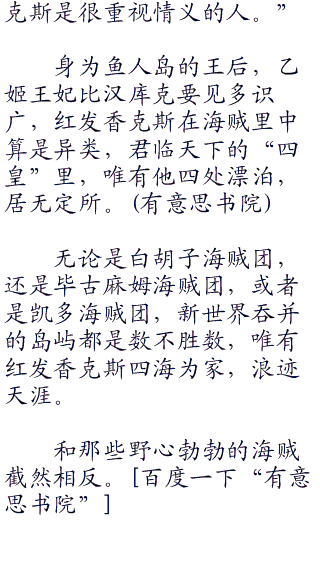 克斯是很重视情义的人。”
身为鱼人岛的王后，乙
姬王妃比汉库克要见多识
广，红发香克斯在海贼里中
算是异类，君临天下的“四
皇”里，唯有他四处漂泊，
居无定所。(有意思书院)
无论是白胡子海贼团，
还是毕古麻姆海贼团，或者
是凯多海贼团，新世界吞并
的岛屿都是数不胜数，唯有
红发香克斯四海为家，浪迹
天涯。
和那些野心勃勃的海贼
截然相反。[百度一下“有意
思书院”]